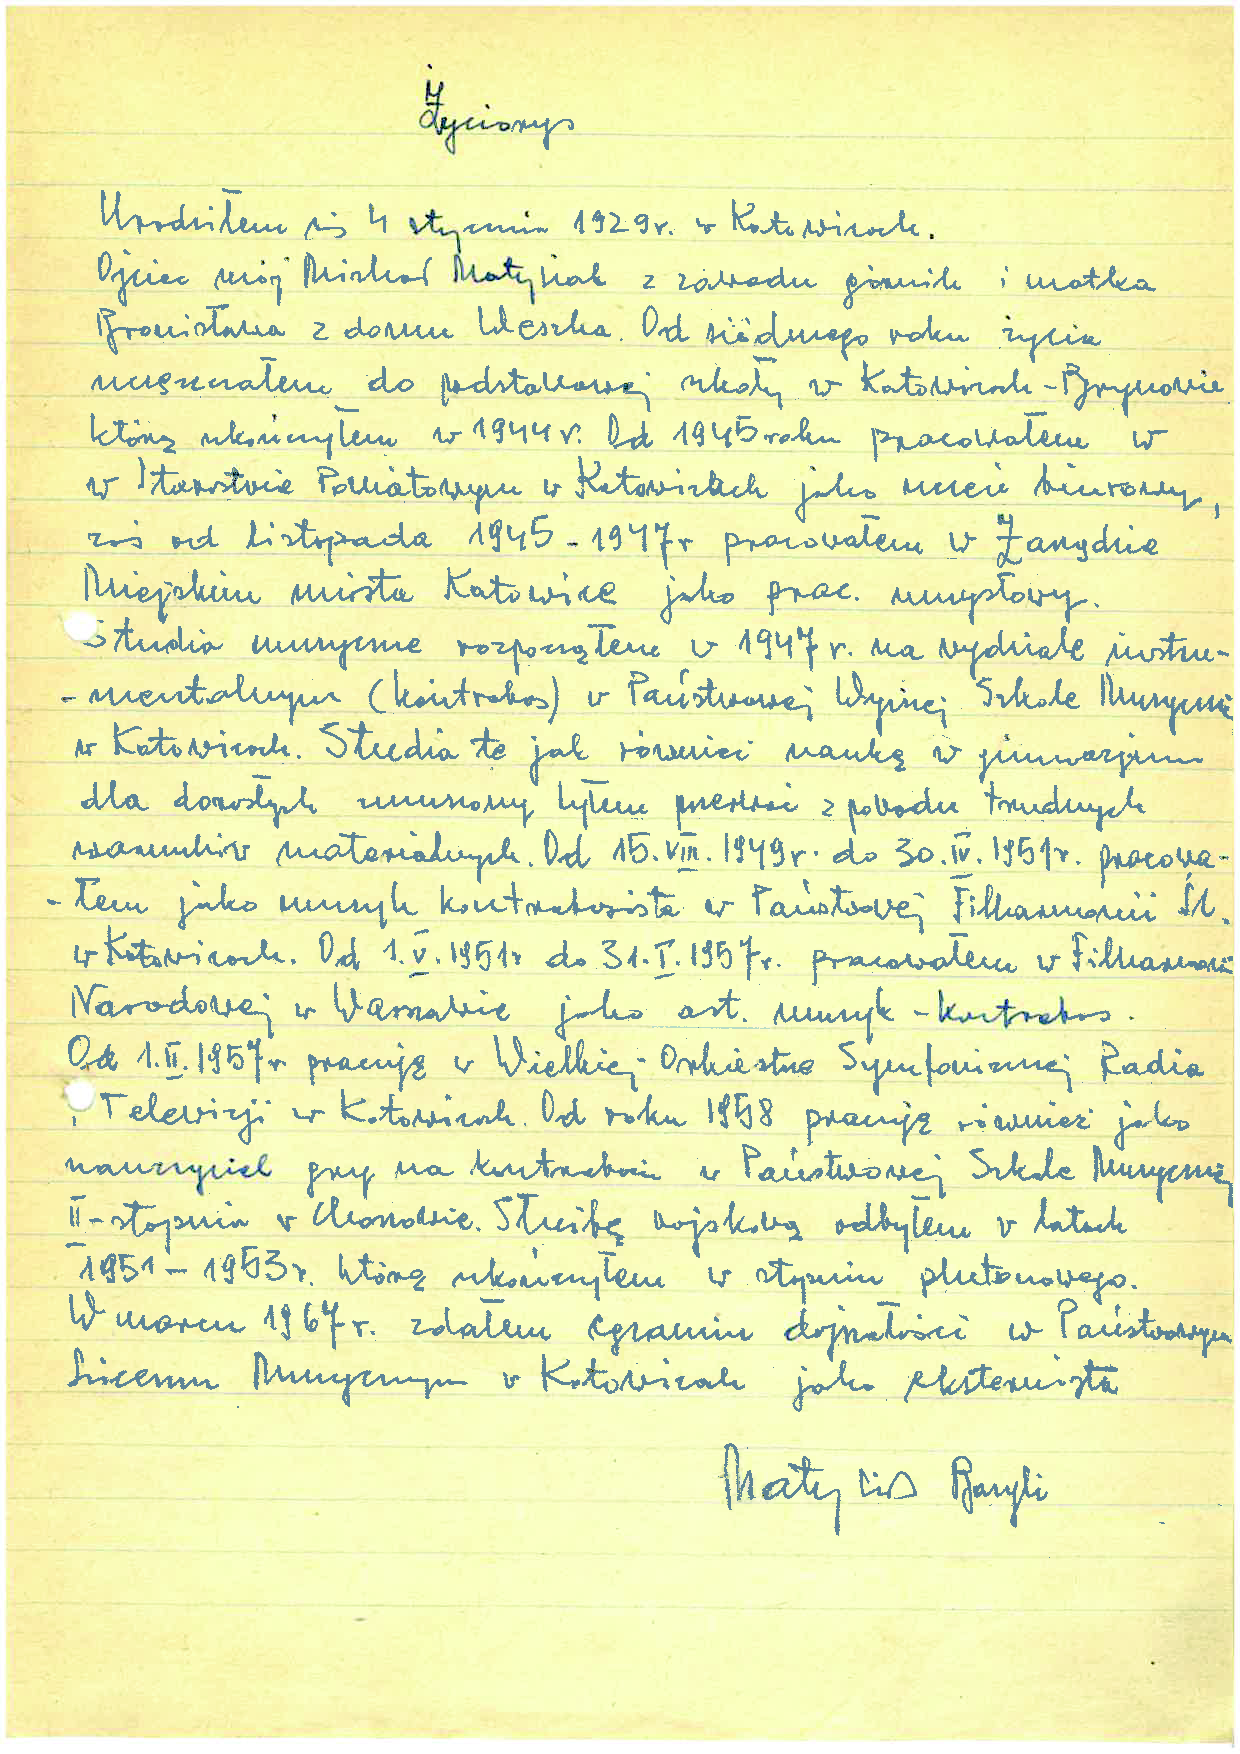 Życiorys
Urodziłem się 4 stycznia 1929r. w Katowicach.
Ojciec mój Michał Matysiak z zawodu górnik i matka
Bronisława z domu Weszka. Od siódmego roku życia
uczęszczałem do podstawowej szkoły w Katowicach-Brynowie
którą ukończyłem w 1944r. Od 1945 roku pracowałem w
w Starostwie Powiatowym w Katowicach jako uczeń biurowy,
zaś od listopada 1945-1947r pracowałem w Zarządzie
Miejskim miasta Katowice jako prac. umysłowy.
Studia muzyczne rozpocząłem w 1947r. na wydziale instru-
-mentalnym (kontrabas) w Państwowej Wyższej Szkole Muzycznej
w Katowicach. Studia te jak również naukę w gimnazjum
dla dorosłych zmuszony byłem przerwać z powodu trudnych
warunków materialnych. Od 15.VIII.1949r. do 30.IV.1951r. pracowa-
-łem jako muzyk kontrabasista w Państwowej Filharmonii Śl.
w Katowicach. Od 1.V.1951r do 31.I.1957r. pracowałem w Filharmonii
Narodowej w Warszawie jako art. muzyk - kontrabas.
Od 1.II.1957r pracuję w Wielkiej Orkiestrze Symfonicznej Radia
i Telewizji w Katowicach. Od roku 1958 pracuję również jako
nauczyciel gry na kontrabasie w Państwowej Szkole Muzycznej
II-stopnia w Chorzowie. Służbę wojskową odbyłem w latach
1951-1953r. którą ukończyłem w stopniu plutonowego.
W marcu 1967r. zdałem egzamin dojrzałości w Państwowym
Liceum Muzycznym w Katowicach jako eksternista
Matysiak Bazyli